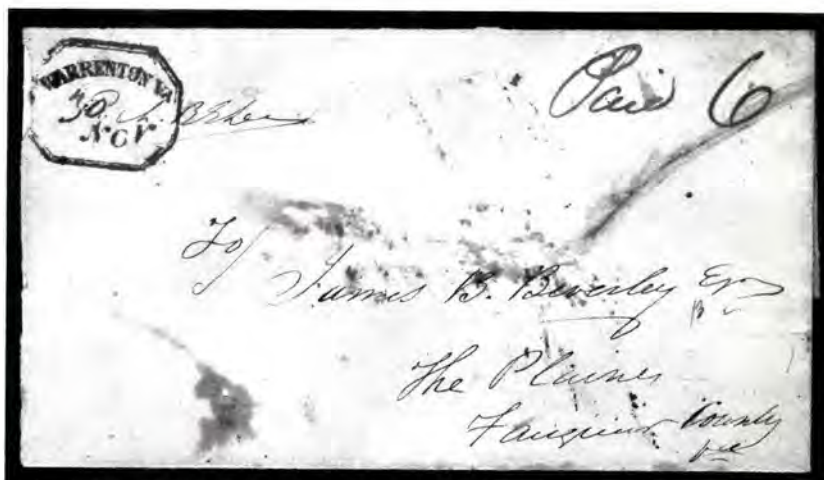 WARRENTON Va
30
NOV
Paid 6
To/
James B. Beverley Esq
The Plaines
Fauquier County
Va